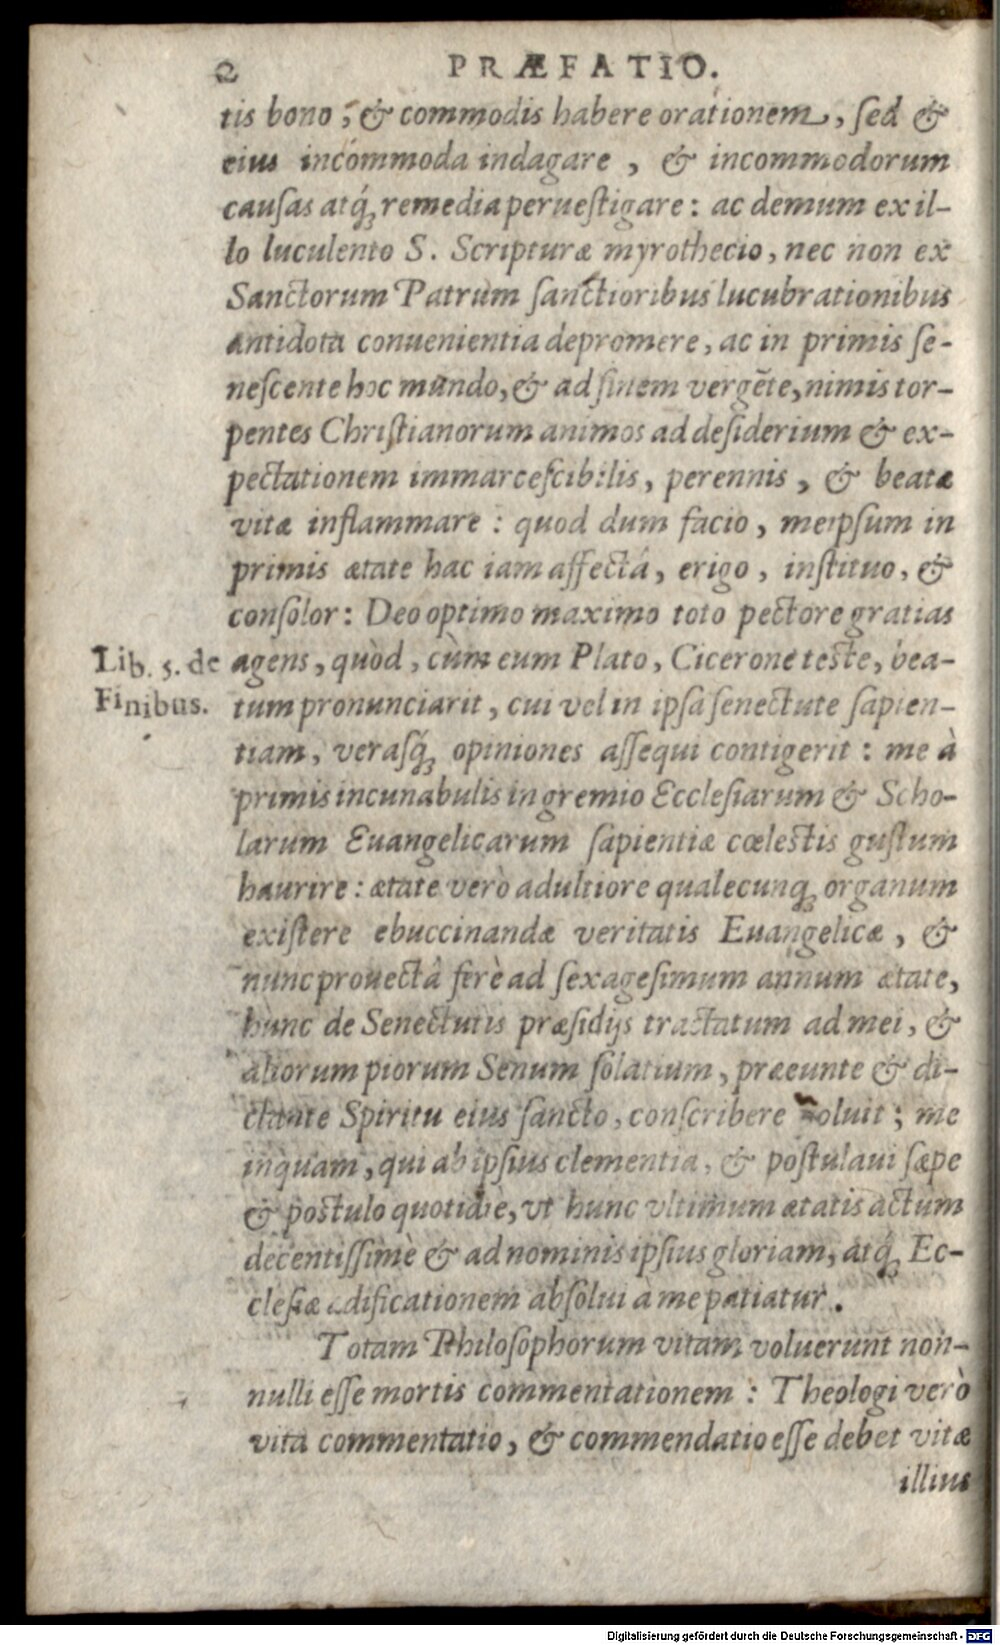 2 PRÆFATIO.
tis bono, & commodis habere orationem, ſed &
eius incommoda indagare, & incommodorum
cauſas atq́; remedia perueſtigare: ac demum ex il-
lo luculento S. Scripturæ myrothecio, nec non ex
Sanctorum Patrum ſanctioribus lucubrationibus
antidota conuenientia depromere, ac in primis ſe-
neſcente hoc mundo, & ad finem vergẽte, nimis tor-
pentes Chriſtianorum animos ad deſiderium & ex-
pectationem immarceſcibilis, perennis, & beatæ
vitæ inflammare: quod dum facio, meipſum in
primis ætate hac iam affectâ, erigo, inſtituo, &
conſolor: Deo optimo maximo toto pectore gratias
Lib. 5. de
Finibus.
agens, quòd, cùm eum Plato, Cicerone teſte, bea-
tum pronunciarit, cui vel in ipſa ſenectute ſapien-
tiam, veraſq́; opiniones aſſequi contigerit: me à
primis incunabulis in gremio Eccleſiarum & Scho-
larum Euangelicarum ſapientiæ cœleſtis guſtum
haurire: ætate verò adultiore qualecunq; organum
exiſtere ebuccinandæ veritatis Euangelicæ, &
nunc prouectâ ferè ad ſexageſimum annum ætate,
hunc de Senectutis præſidijs tractatum ad mei, &
aliorum piorum Senum ſolatium, præeunte & di-
ctante Spiritu eius ſancto, conſcribere voluit; me
inquam, qui ab ipſius clementia, & poſtulaui ſæpe
& poſtulo quotidie, vt hunc vltimum ætatis actum
decentiſſimè & ad nominis ipſius gloriam, atq́; Ec-
cleſiæ ædificationem abſolui à me patiatur.
Totam Philoſophorum vitam voluerunt non-
nulli eſſe mortis commentationem: Theologi verò
vita commentatio, & commendatio eſſe debet vitæ
illius
Digitalisierung gefördert durch die Deutsche Forschungsgemeinschaft - DFG